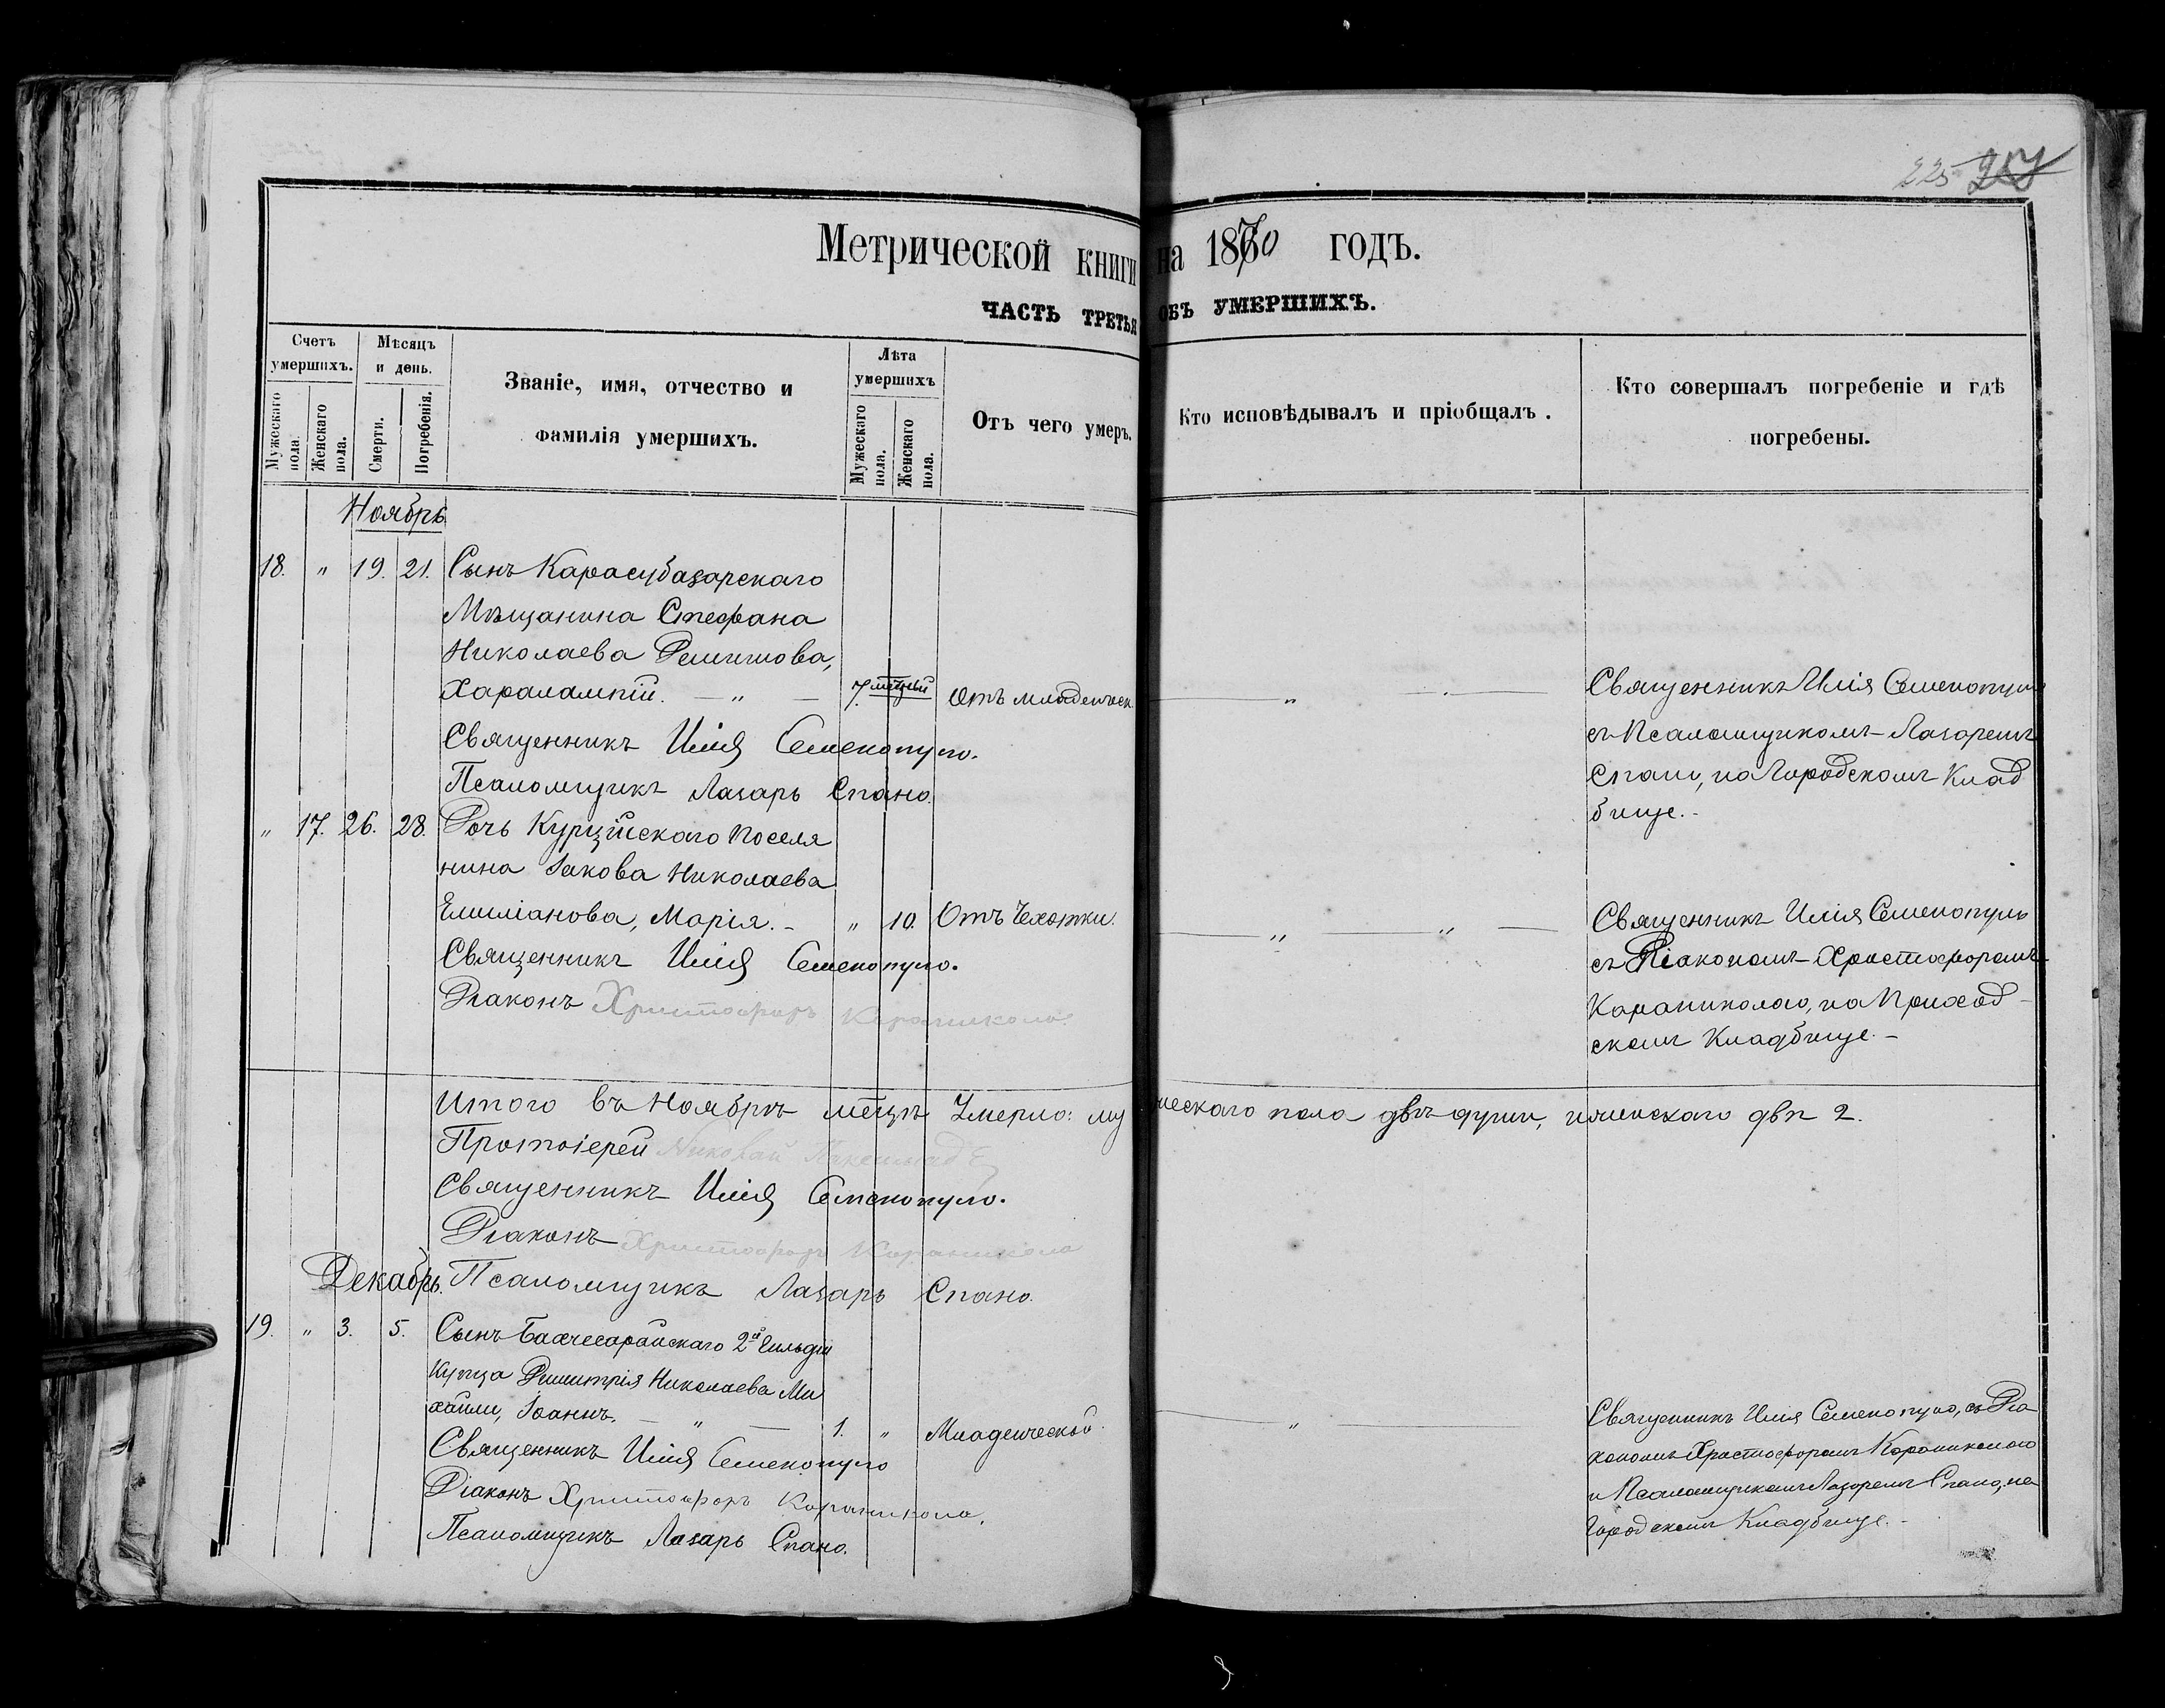 225
Метрической книги на 1870 годъ.
ЧАСТЬ ТРЕТЬЯ ОБЪ УМЕРШИХЪ.
Счетъ умершихъ.
Мужескаго пола.
Женскаго пола.
Мѣсяцъ и день.
Смерти.
Погребенія.
Званіе, имя, отчество и
фамилія умершихъ.
Лѣта умершихъ
Мужескаго пола.
Женскаго пола.
Отъ чего умеръ.
Кто исповѣдывалъ и пріобщалъ.
Кто совершалъ погребеніе и гдѣ
погребены.
Ноябрь
18. " 19. 21. Сынъ Карасубазарскаго
Мѣщанина Стефана
Николаева
Харалампій. — " — 7. мѣцевъ Отъ младенческ. "
Священникъ Илія Семенопуло.
Псаломщикъ Лазарь Спано.
Священникъ Илія Семенопуло
съ Псаломщикомъ Лазаремъ
Спано, на Городскомъ Клад
бище.-
" 17. 26. 28. Дочь Курційскаго поселя
нина Іакова Николаева
Елиміанова, Марія.- " 10. Отъ Чахотки. " "
Священникъ Илія Семенопуло.
Діаконъ Христофоръ Караникола
Священникъ Илія Семенопуло
съ Діакономъ Христофоромъ
Караниколою, на Приход-
скомъ Кладбище.-
Итого въ Ноябрѣ мѣцѣ Умерло: мужескаго пола двѣ души, и женскаго двѣ 2.
Протоіерей Николай
Священникъ Илія Семенопуло.
Діаконъ Христофоръ Караникола
Псаломщикъ Лазарь Спано.
Декабрь.
19. " 3. 5. Сынъ Бахчесарайскаго 2й Гильдіи
Купца Димитрія Николаева Ми
хайли, Іоаннъ. — " — 1. " Младенческой. "
Священникъ Илія Семенопуло
Діаконъ Христофоръ Караникола.
Псаломщикъ Лазарь Спано.
Священникъ Илія Семенопуло, съ Діа
кономъ Христофоромъ Караниколою
и Псаломщикомъ Лазаремъ Спано, на
Городскомъ Кладбище.-